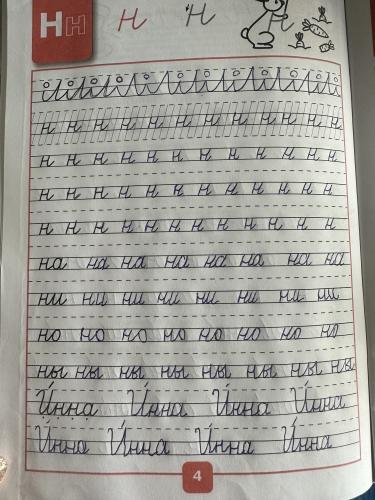 Нн н Н н
н н н н н н н н н н н н
н н н н н н н н н н н н
н н н н н н н н н н н н
н н н н н н н н н н н н
на на на на на на на на
ни ни ни ни ни ни ни ни
но но но но но но но но
ны ны ны ны ны ны ны ны
И́нна И́нна И́нна И́нна
И́нна И́нна И́нна И́нна
4